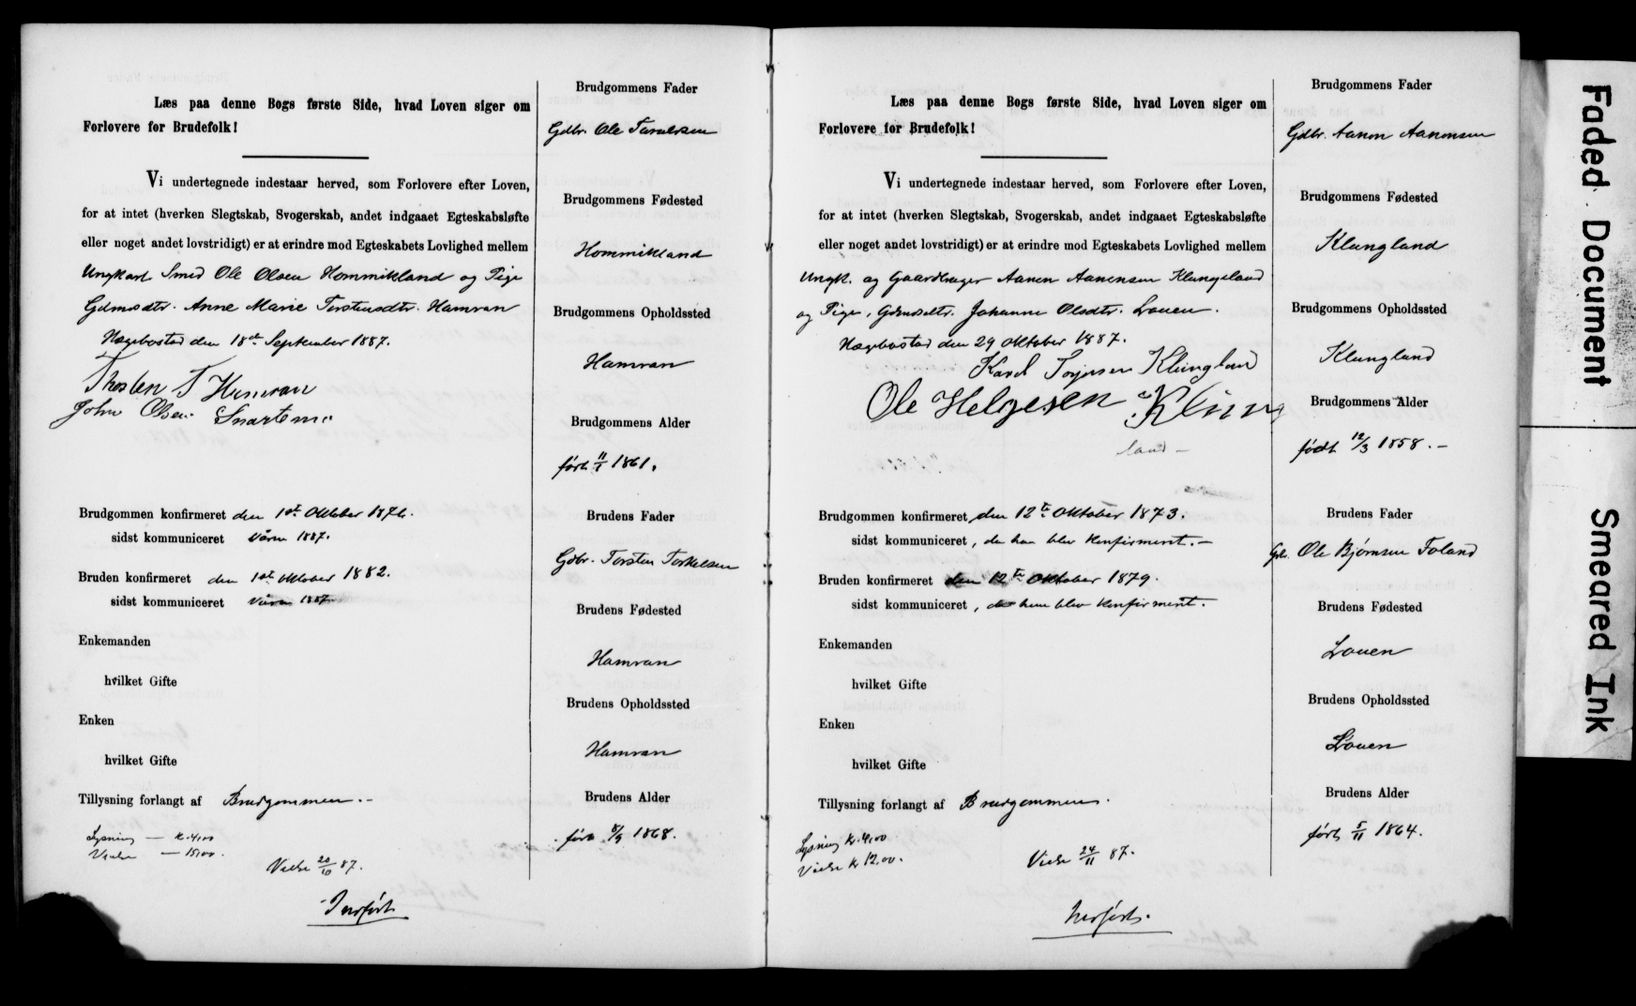 Læs paa denne Bogs første Side, hvad Loven siger om
Forlovere for Brudefolk!
Vi undertegnede indestaar herved, som Forlovere efter Loven,
for at intet (hverken Slegtskab, Svogerskab, andet indgaaet Egteskabsløfte
eller noget andet lovstridigt) er at erindre mod Egteskabets Lovlighed mellem
Ungkarl Smed Ole Olsen Hommikland og Pige
Gdmsdtr. Anne Marie Torstensdtr. Hamran
Hægebostad den 18de September 1887.
Thosten T Hamran
John Olsen Snartemo
Brudgommen konfirmeret den 1st Oktober 1876.
sidst kommuniceret Våren 1887.
Bruden konfirmeret den 1st Oktober 1882.
sidst kommuniceret Våren 1887
Enkemanden
hvilket Gifte
Enken
hvilket Gifte
Tillysning forlangt af Brudgommen.-
Lysning — Kr. 4,00
Vielse — 15,00.
Vielse 20/10 87.
Indført
Brudgommens Fader
Gdbr. Ole Taraldsen
Brudgommens Fødested
Hommikland
Brudgommens Opholdssted
Hamran
Brudgommens Alder
født 11/1 1861.
Brudens Fader
Gdbr. Torsten Torkelsen
Brudens Fødested
Hamran
Brudens Opholdssted
Hamran
Brudens Alder
født 8/9 1868.
Læs paa denne Bogs første Side, hvad Loven siger om
Forlovere for Brudefolk!
Vi undertegnede indestaar herved, som Forlovere efter Loven,
for at intet (hverken Slegtskab, Svogerskab, andet indgaaet Egteskabsløfte
eller noget andet lovstridigt) er at erindre mod Egteskabets Lovlighed mellem
Ungk. og Gaardbruger Aanen Aanensen Klungeland
og Pige, Gdmdsdtr. Johanne Olsdtr. Lauen.
Hægebostad den 29 Oktober 1887.
Karel Torjusen Klungland
Ole Helgesen Klung
land –
Brudgommen konfirmeret, den 12te Oktober 1873.
sidst kommuniceret, da han blev konfirmeret.–
Bruden konfirmeret den 12te Oktober 1879.
sidst kommuniceret, da hun blev konfirmeret.
Enkemanden
hvilket Gifte
Enken
hvilket Gifte
Tillysning forlangt af Brudgommen.
Lysning Kr. 4,00
Vielse Kr 12,00.
Vielse 24/11 87.
Indført.
Brudgommens Fader
Gdbr. Aanon Aanonsen
Brudgommens Fødested
Klungland
Brudgommens Opholdssted
Klungland
Brudgommens Alder
født 12/3 1858.–
Brudens Fader
Gdb. Ole Bjørnsen Foland
Brudens Fødested
Lauen
Brudens Opholdssted
Lauen
Brudens Alder
født 5/11 1864.
Faded Document
Smeared Ink